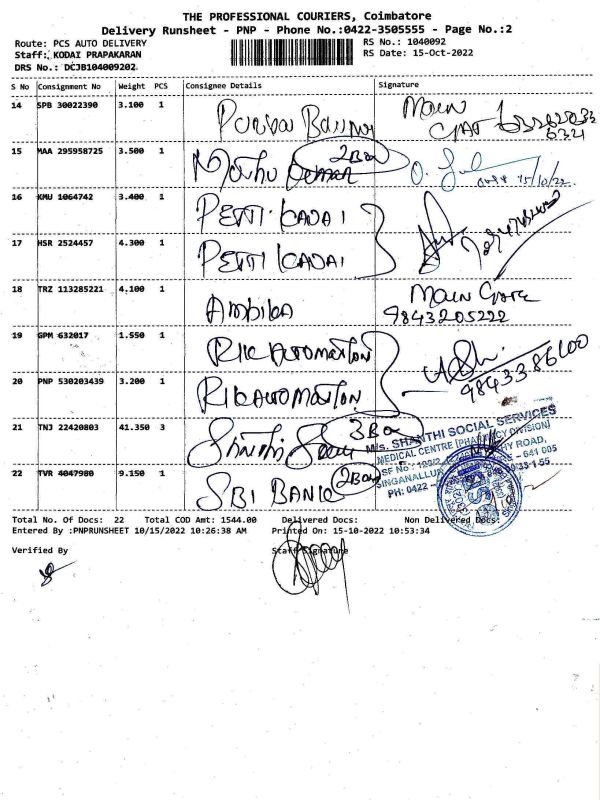 THE PROFESSIONAL COURIERS, Coimbatore
Delivery Runsheet - PNP - Phone No.:0422-3505555 - Page No.:2
Route: PCS AUTO DELIVERY
RS No.: 1040092
Staff: KODAI PRAPAKARAN
RS Date: 15-Oct-2022
DRS No.: DCJB104009202
S No Consignment No Weight PCS Consignee Details Signature
14 SPB 30022390 3.100 1 Main
15 MAA 295958725 3.500 1 2Box 15/10/22
16 KMU 1064742 3.400 1 PETTI KADAI
17 HSR 2524457 4.300 1 PETTI KADAI
18 TRZ 113285221 4.100 1 Ambika Main Gate
9843205222
19 GPM 632017 1.550 1 RIK AUTOMATION
20 PNP 530203439 3.200 1 RIK AUTOMATION 9843386600
21 TNJ 22420803 41.350 3 3Box
M/s. SHANTHI SOCIAL SERVICES
MEDICAL CENTRE (PHARMACY DIVISION)
SF No ROAD,
SINGANALLUR - 641 005
PH: 0422 -
22 TVR 4047980 9.150 1 SBI BANK 2Box
Total No. Of Docs: 22 Total COD Amt: 1544.00 Delivered Docs: Non Delivered Docs:
Entered By :PNPRUNSHEET 10/15/2022 10:26:38 AM Printed On: 15-10-2022 10:53:34
Verified By Staff Signature